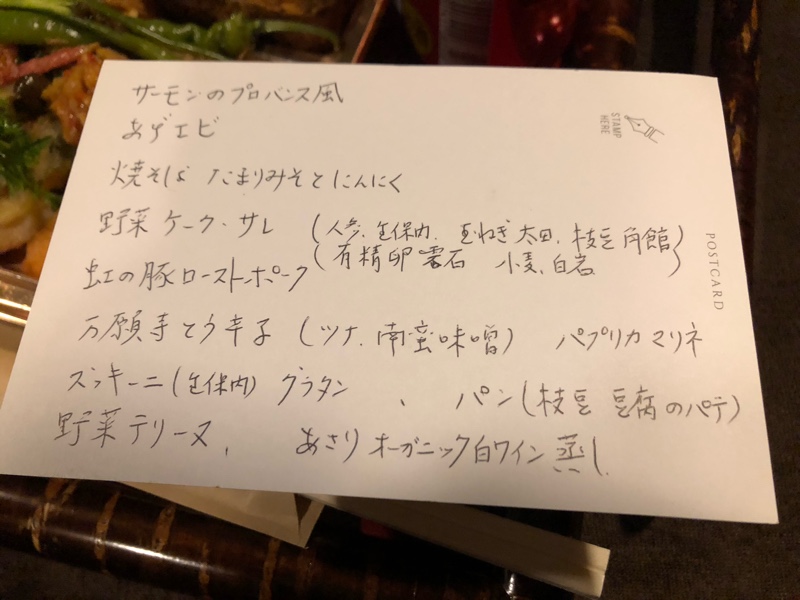 サーモンのプロバンス風
あげエビ
焼そば たまりみそとにんにく
野菜 ケーク・サレ (人参.生保内. 玉ねぎ 太田. 枝豆 角館
有精卵 雫石 小麦.白岩)
虹の豚ローストポーク
万願寺とう辛子 (ツナ.南蛮味噌) パプリカ マリネ
ズッキーニ(生保内) グラタン 、 パン(枝豆 豆腐のパテ)
野菜テリーヌ、 あさりオーガニック白ワイン蒸し
STAMP HERE
POSTCARD